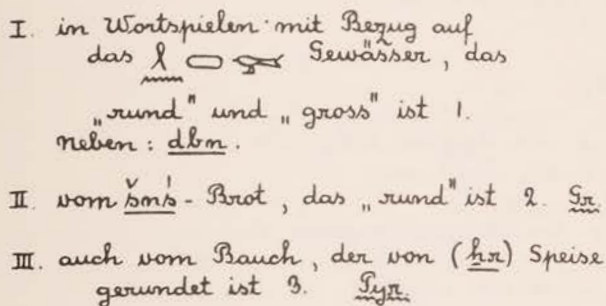 I. in Wortspielen mit Bezug auf
das Gewässer, das
„rund" und „gross" ist 1.
neben: dbn.
II. vom šnś-Brot, das „rund" ist 2. Gr.
III. auch vom Bauch, der von (hr) Speise
gerundet ist 3. Pyr.